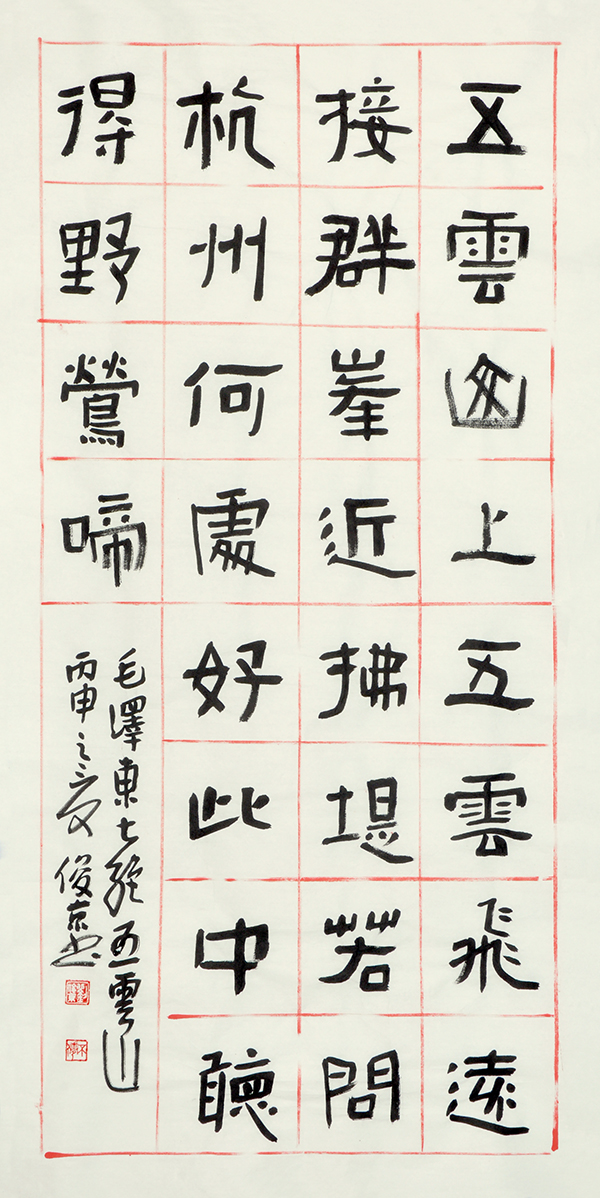 五雲山上五雲飛遠
接群峯近拂堤若問
杭州何處好此中聽
得野鶯啼
毛澤東七絕五雲山
丙申之夏俊京書